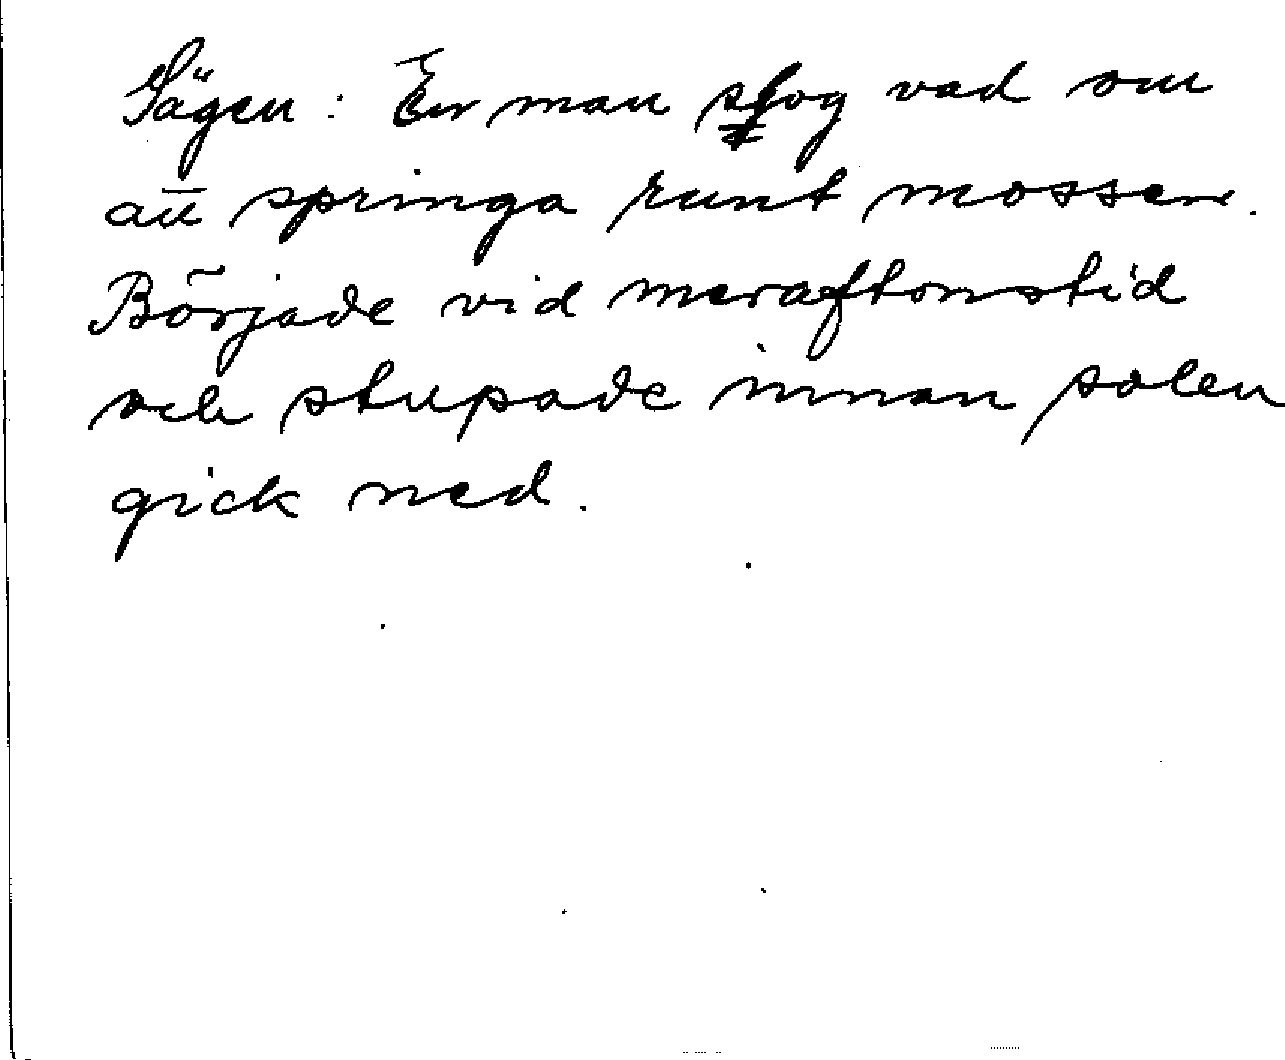 Sägen: En man slog vad om
att springa runt mossen.
Började vid meraftonstid
och stupade innan solen
gick ned.